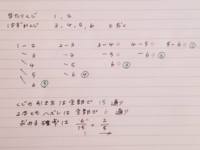 当たりくじ 1, 2
はずれくじ 3, 4, 5, 6 とおく
1－2 2－3 3－4 4－5 5－6 ①
3 4 5 6 ②
4 5 6 ③
5 6 ④
6 ⑤
くじの引き方は全部で 15 通り
2本ともハズレは全部で 6 通り
求める確率は 6/15 = 2/5